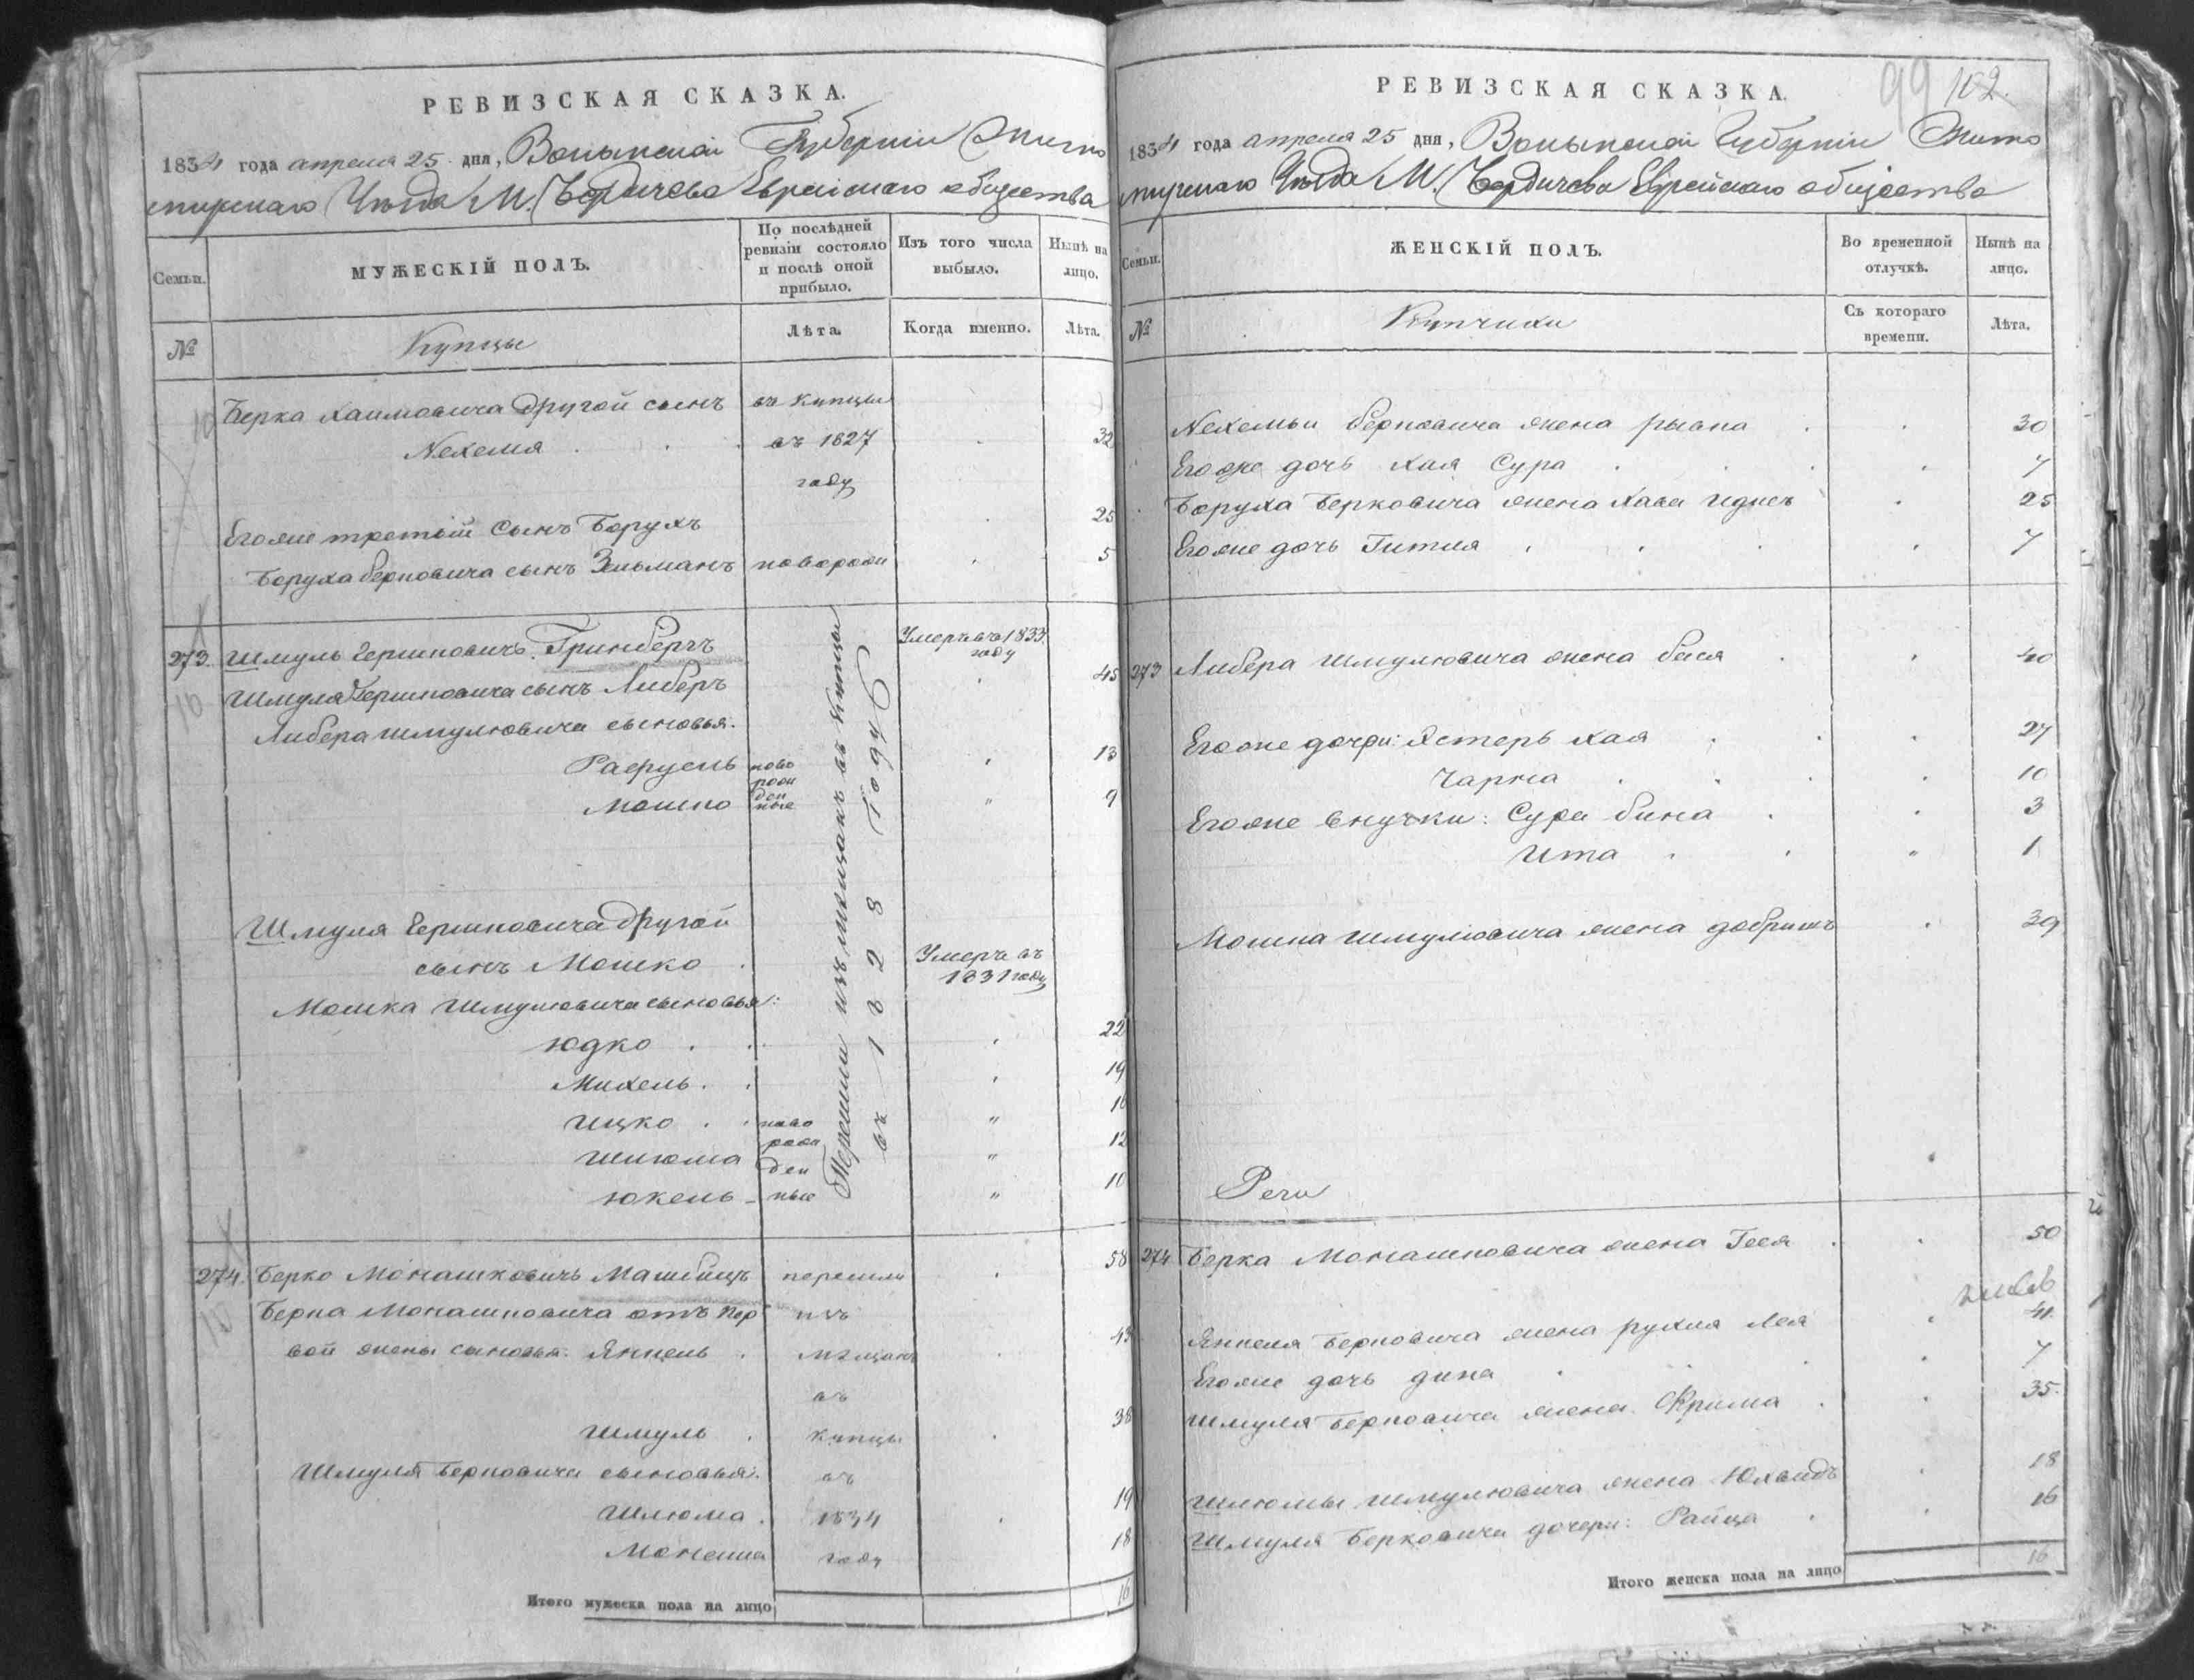 РЕВИЗСКАЯ СКАЗКА.
1834 года апреля 25 дня, Волынской Губернии Жито
мирскаго Уезда М. Бердичева Еврейскаго общества
Семьи.
МУЖЕСКІЙ ПОЛЪ.
По послѣдней ревизіи состояло и послѣ оной прибыло.
Изъ того числа выбыло.
Нынѣ на лицо.
№
Купцы
Лѣта.
Когда именно.
Лѣта.
Берка Хаимовича другой сынъ въ купцы
Нехемя въ 1827 32
году
Егоже третьій сынъ Борухъ 25
Боруха Берковича сынъ Зельманъ 5
273. Шмуль Гершковичъ Гринбергъ Умеръ въ 1833 году
Шмуля Гершковича сынъ Либеръ 45
Либера Шмулювича сыновья.
новорожденные 13
Мошко 9
Шмуля Гершковича другой
сынъ Мошко Умеръ въ 1831 году
Мошка Шмулювича сыновья:
Юдко 22
Михель 19
Ицко 16
Шлюма новорожденные 12
Юкель 10
Перешли изъ мещанъ въ Купцы
въ 1828 Году
274. Берко Монашковичъ перешли 58
Берка Монашковича отъ пер изъ
вой жены сыновья: Янкель мещанъ 43
въ
Шмуль купцы 38
Шмуля Берковича сыновья: въ
Шлюма 1834 19
Монаша году 18
Итого мужеска пола на лицо 16
РЕВИЗСКАЯ СКАЗКА.
99 102.
1834 года апреля 25 дня, Волынской Губернии Жито
мирскаго Уезда М. Бердичева Еврейскаго общества
Семьи.
ЖЕНСКІЙ ПОЛЪ.
Во временной отлучкѣ.
Нынѣ на лицо.
№
Купчихи
Съ котораго времени.
Лѣта.
Нехемьи Берковича жена Рывка 30
Егоже дочь Хая Сура 7
Боруха Берковича жена Хава 25
Егоже дочь Гитля 7
273 Либера Шмулювича жена Бася 40
Егоже дочри: Эстерь Хая 27
Чарна 10
Егоже внучки: Сура Бина 3
Ита 1
Мошка Шмулювича жена Добришъ 39
274 Берка Монашковича жена Гея 50
Янкеля Берковича жена Рухля Лея 41
Егоже дочь Дина 7
Шмуля Берковича жена Фрима 35.
Шлюмы Шмулювича жена 18
Шмуля Берковича дочери: Райца 16
Итого женска пола на лицо 16